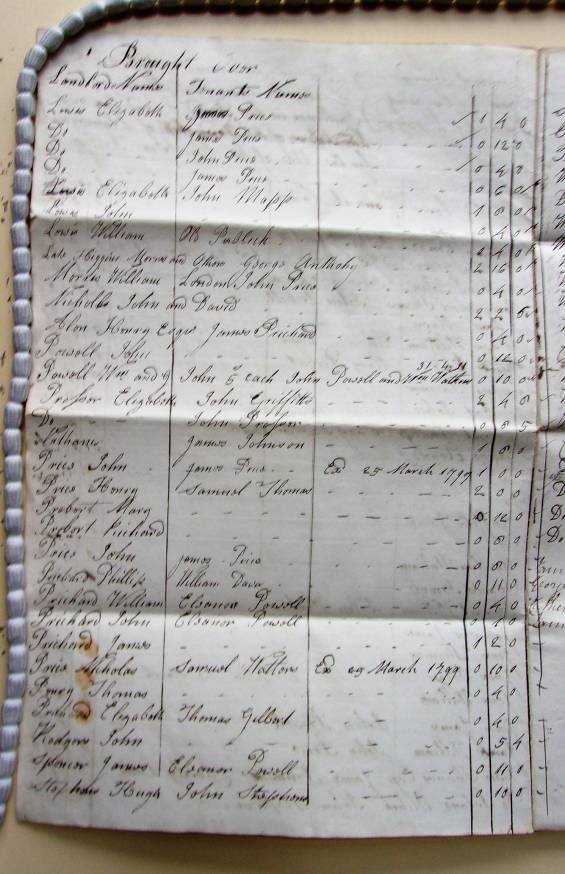 Brought over
Landlords Names Tenants Names
Lewis Elizabeth James Price 1 4 0
Do James Price 0 12 0
Do John Price 0 4 0
Do James Price 0 6 0
Lewis Elizabeth John Mapp 1 8 0
Lewis John 0 4 0
Lewis William 2 4 0
Late Higgins Morris and Others George Anthony 2 16 0
Morris William London John Price 0 4 0
Nicholas John and David 2 2 0
Henry Esqr James Prichard 0 4 0
Powell John 0 12 0
Powell Wm and John each John Powell and Wm Watkins 0 10 0
Prosser Elizabeth John Griffiths 2 4 0
Do John Prosser 0 8 5
James Johnson 1 8 0
Price John James Price Ex 25 March 1799 1 0 0
Price Henry Samuel Thomas 2 0 0
Probert Mary 0 12 0
Probert Richard 0 8 0
Price John James Price 0 8 0
Prichard Phillip William 0 11 0
Prichard William Eleanor Powell 0 4 0
Prichard John Eleanor Powell 0 4 0
Prichard James 1 2 0
Price Nicholas Samuel Watkins Ex 29 March 1799 0 10 0
Thomas 0 4 0
Prichard Elizabeth Thomas Gilbert 0 4 0
Rodgers John 0 5 4
Spencer James Eleanor Powell 0 11 0
Stephens Hugh John Stephens 0 10 0